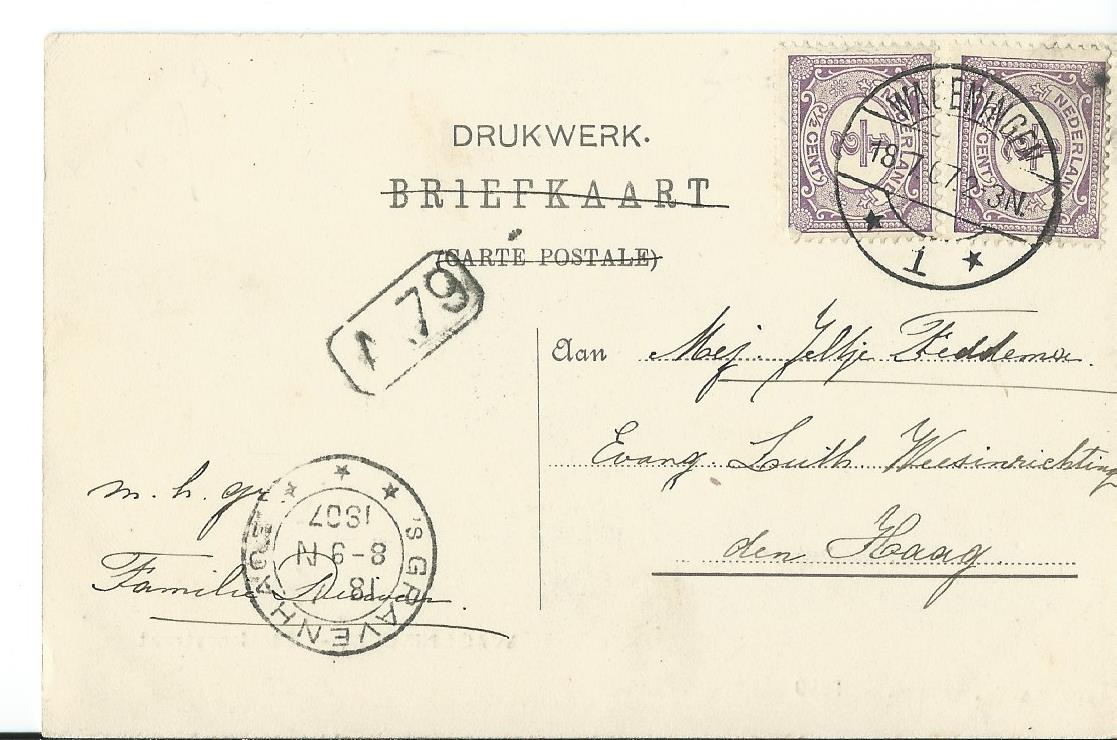 DRUKWERK.
BRIEFKAART
(CARTE POSTALE)
NEDERLAND
½ CENT
NEDERLAND
½ CENT
WAGENINGEN
18.7.07. 2-3N.
1
A 79
Aan Mej. Jeltje Feddema.
Evang. Luth. Weesinrichting
den Haag
m. h. gr.
Familie
'S GRAVENHAGE
18
8-9 N
1907